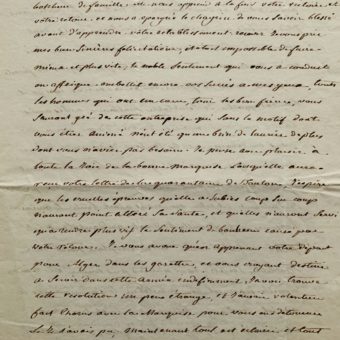 bonheur de famille, elle nous apprend à la fois votre victoire et
votre retour, et nous a épargné le chagrin de vous savoir blessé
avant d'apprendre votre établissement. recevez je vous prie
mes bien sincères félicitations, il était impossible de faire
mieux et plus vite, le noble sentiment qui vous a conduit
en affrique embellit encore vos succès à mes yeux, tous
les hommes qui ont un cœur, Général les bien frères, vous
sauront gré de cette entreprise que sans le motif dont
vous étiez animé n'eut été qu'un brin de laurier de plus
dont vous n'aviez pas besoin. Je pense avec plaisir à
toute la joie de la bonne marquise lorsqu'elle aura
reçu votre lettre de la quarantaine de Toulon. J'espère
que les cruelles épreuves qu'elle a subies coup sur coup
n'auront point altéré sa santé, et qu'elles n'auront servi
qu'à rendre plus vif le sentiment de bonheur causé par
votre retour. Je vous avoue qu'en apprenant votre départ
pour Alger dans les gazettes, et vous croyant destiné
à servir dans cette armée indéfiniment, J'avais trouvé
cette résolution un peu étrange, et J'aurais volontiers
fait chorus avec la Marquise pour vous en détourner
si Je l'avais pu, maintenant tout est éclairci et tout